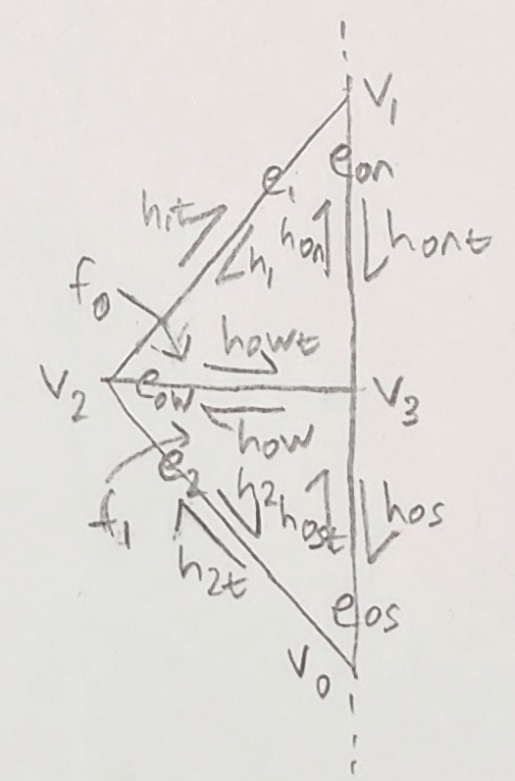 v1
e1
eon
h1t
h1
hon
hont
f0
howt
v2
eow
v3
how
e2
f1
h2
host
hos
h2t
eos
v0